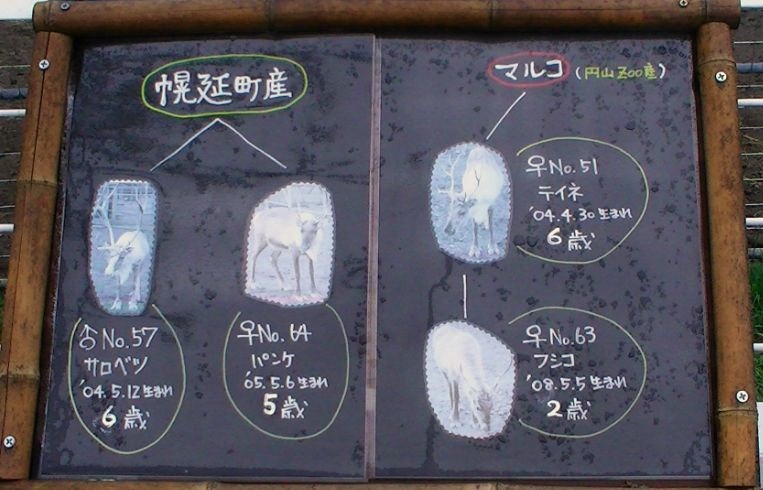 幌延町産
♂No.57
サロベツ
'04.5.12生まれ
6歳
♀No.64
パンケ
'05.5.6生まれ
5歳
マルコ(円山Zoo産)
♀No.51
テイネ
'04.4.30生まれ
6歳
♀No.63
フシコ
'08.5.5生まれ
2歳